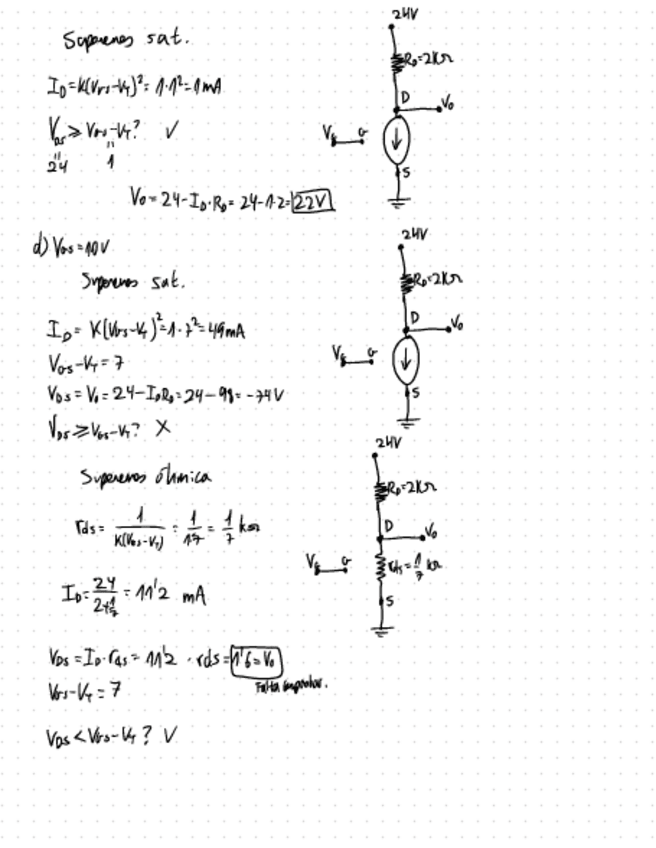 Suponemos sat.
I_D = K(V_GS-V_T)² = 1·1² = 1 mA
V_DS ≥ V_GS-V_T? ✓
24 1
V_0 = 24-I_D·R_D = 24-1·2 = 22V
24V
R_D=2KΩ
D
V_0
V_G G
S
d) V_GS = 10V
Suponemos sat.
I_D = K(V_GS-V_T)² = 1·7² = 49mA
V_GS-V_T = 7
V_DS = V_0 = 24-I_D R_D = 24-98 = -74V
V_DS ≥ V_GS-V_T? X
24V
R_D=2KΩ
D
V_0
V_G G
S
Suponemos óhmica
r_ds = 1/K(V_GS-V_T) = 1/1·7 = 1/7 kΩ
I_D = 24/2+1/7 = 11'2 mA
V_DS = I_D·r_ds = 11'2 · rds = 1'6 = V_0
Falta
V_GS-V_T = 7
V_DS < V_GS-V_T? V
24V
R_D=2KΩ
D
V_0
V_G G
r_ds = 1/7 kΩ
S